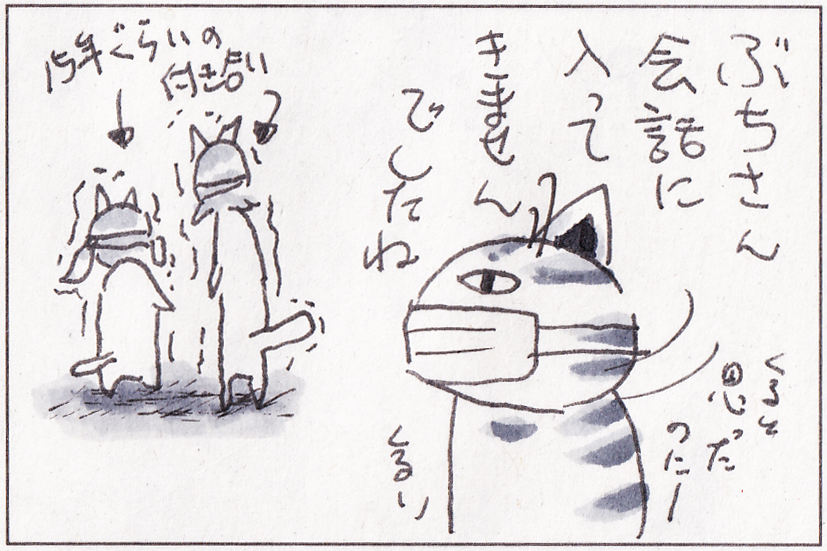 ぶちさん
会話に
入って
きません
でしたね
くると
思った
のにー
くるり
15年ぐらいの
付き合い